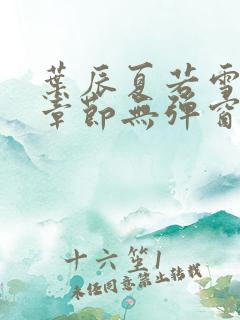 葉辰夏若雪
章節無彈窗
十六笙1
未经同意禁止转载